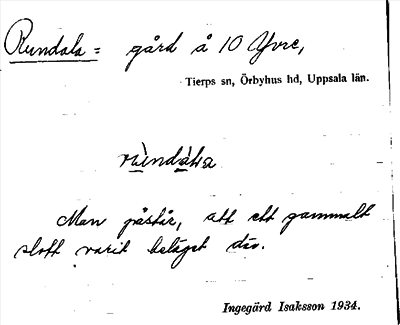 Rundala = gård å 10 Yvre,
Tierps sn, Örbyhus hd, Uppsala län.
Man påstår, att ett gammalt
slott varit beläget där.
Ingegärd Isaksson 1934.